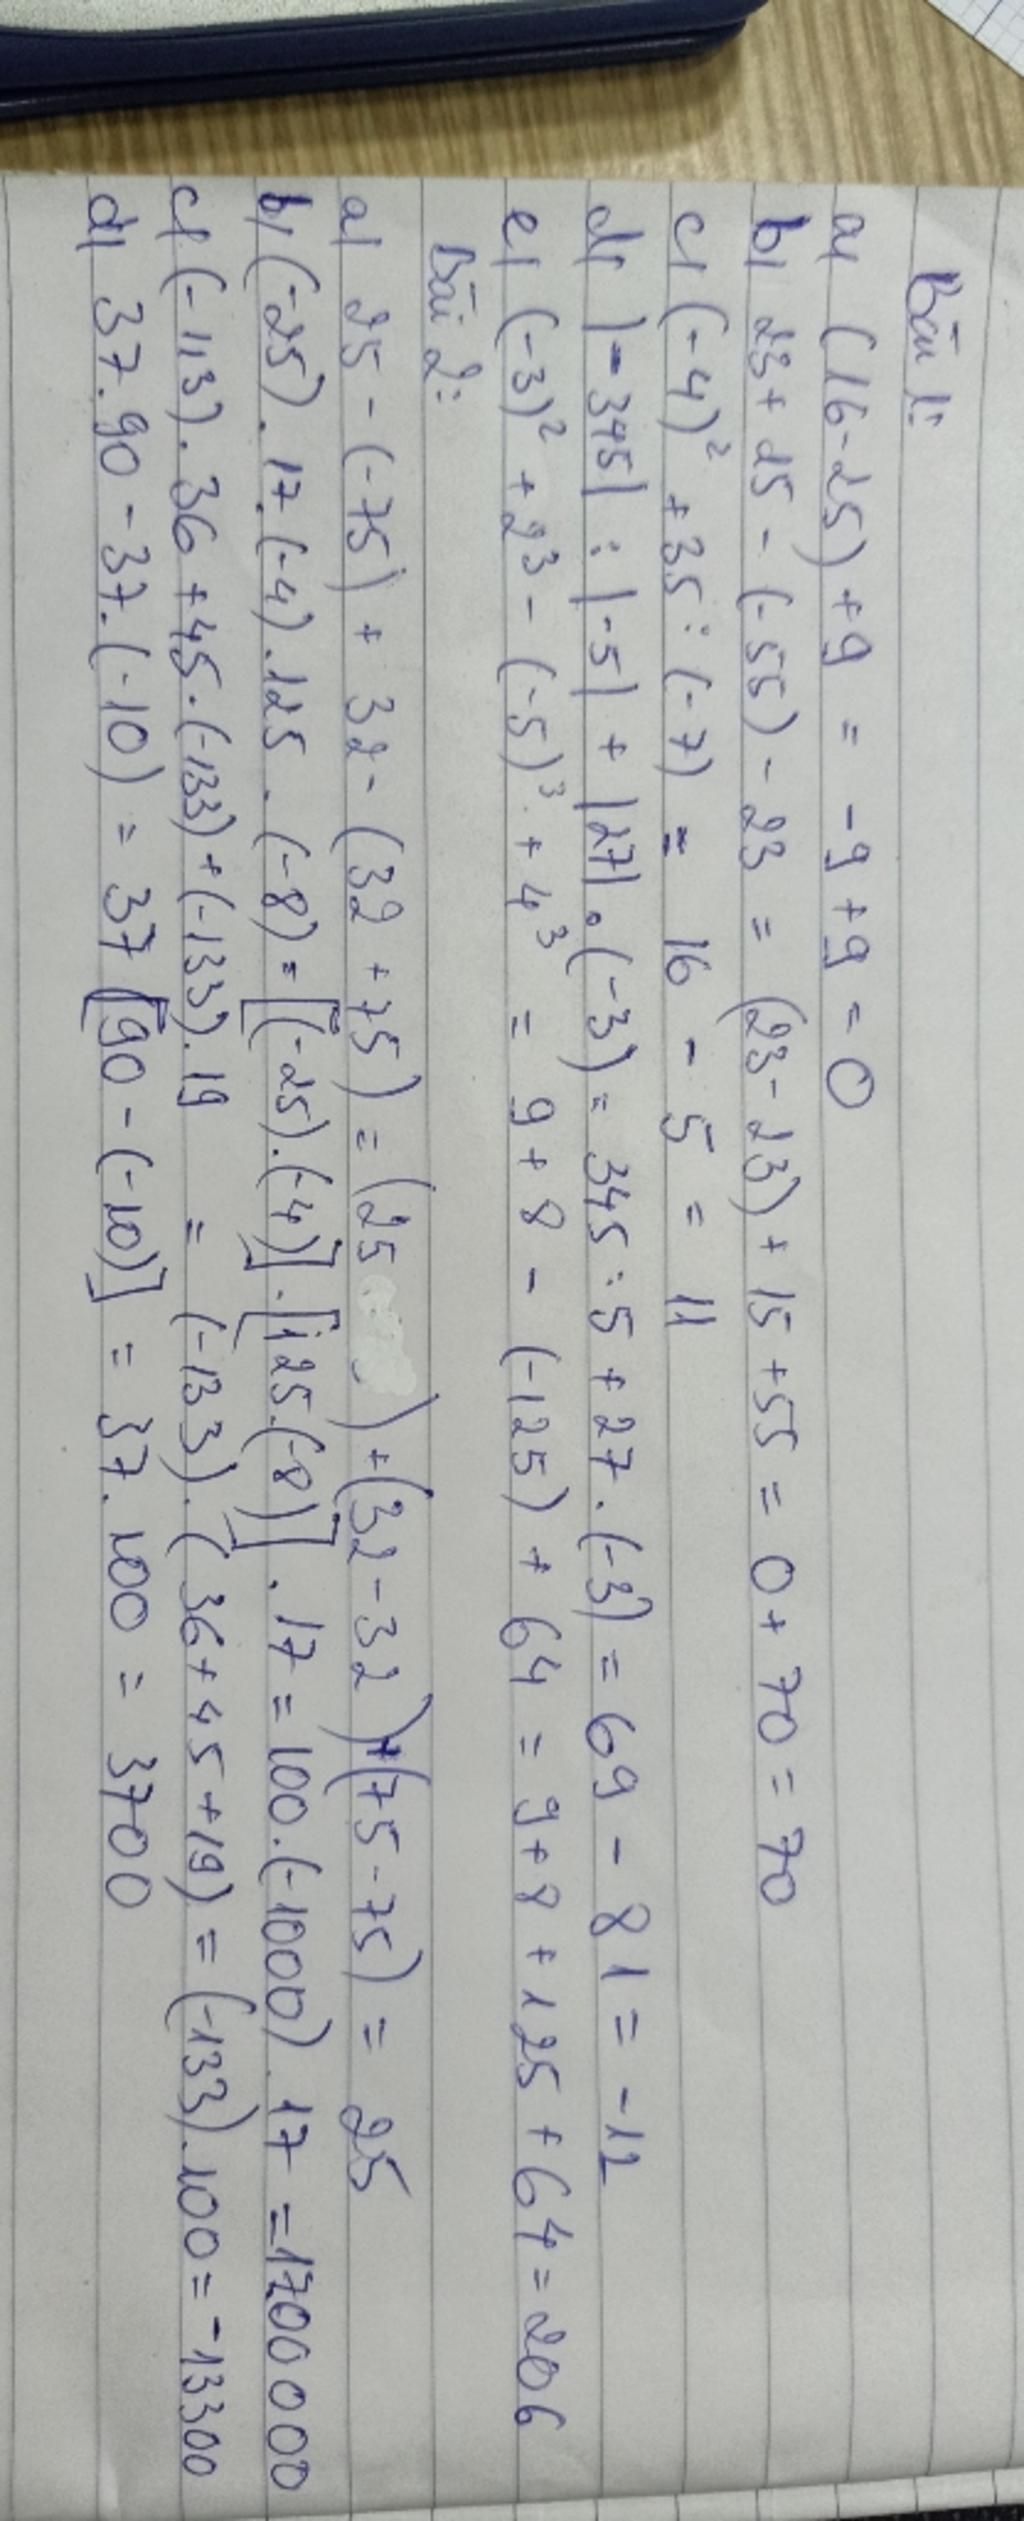 Bài 1:
a) (16-25)+9 = -9+9=0
b) 23+15-(-55)-23 = (23-23)+15+55=0+70=70
c) (-4)² +35:(-7) = 16 - 5 = 11
d) |-345| : |-5| + |27|.(-3)= 345:5+27.(-3)=69-81=-12
e) (-3)² +2³-(-5)³+4³ = 9+8-(-125)+64=9+8+125+64=206
Bài 2:
a) 25-(-75)+32-(32+75)=(25 )+(32-32)+(75-75)= 25
b) (-25).17.(-4).125.(-8)=[(-25).(-4)].[125.(-8)].17=100.(-1000).17=1700000
c) (-113).36+45.(-133)+(-133).19 = (-133).(36+45+19)=(-133).100=-13300
d) 37.90-37.(-10)=37[90-(-10)]=37.100=3700